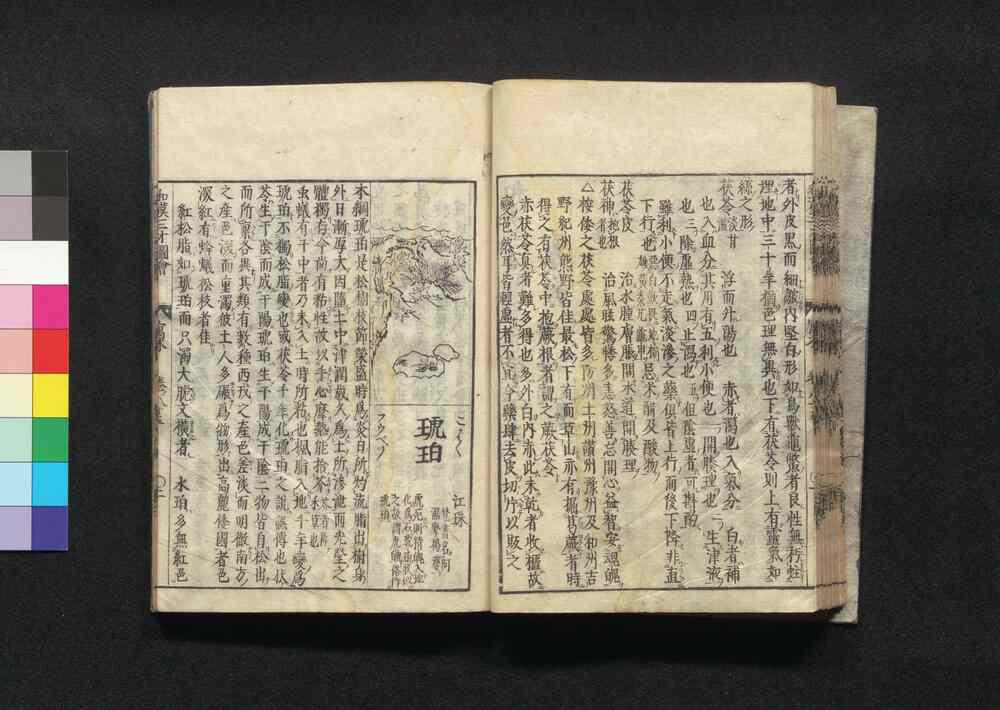 者外皮黒而細皺内堅白形如鳥獸龜鼈者良性無朽蛀
埋地中三十年猶色理無異也下有茯苓則上有靈氣如
絲之形
茯苓 淡甘 浮而外陽也 赤者瀉也入氣分 白者補
也入血分其用有五利小便也一開腠理也二生津液
也三除虚熱也四止瀉也五但陰虚者不可斟酌
雖利小便不走氣淡滲之藥俱皆上行而後下降非直
下行也
茯苓皮 治水腫膚脹開水道開腠理
茯神 治風眩驚悸多恚怒善忘開心益智安魂魄
△按倭之茯苓處處皆多防州土州讃州豫州及和州吉
野紀州熊野皆佳最松下有而草山亦有掘其蕨者時
得之有茯苓中抱蕨根者謂之蕨茯苓
赤茯苓真者難多得也多外白内赤此未乾者收櫃故
變色然耳皆輕虚者不佳今藥肆去皮切片以販之
和漢三才圖會
こはく
琥珀
江珠
本綱琥珀是松樹枝節榮盛時爲炎日所灼流脂出樹身
外日漸厚大因墮土中津潤歳久爲土所滲泄而光瑩之
體獨存今尚有粘性故以手心摩熱能拾芥
虫蟻有于中者乃未入土時所粘也楓脂入地千年變爲
琥珀不獨松脂變也或茯苓千年化琥珀之説誤傳也茯
苓生于陰而成于陽琥珀生于陽成于陰二物皆自松出
而所稟各異其類有數種西戎之産色差淡而明徹南方
之産色深而重濁彼土人多碾爲物形出高麗倭國者色
深紅有蜂蟻松枝者佳
紅松脂如琥珀而只濁大脆文横者 水珀多無紅色